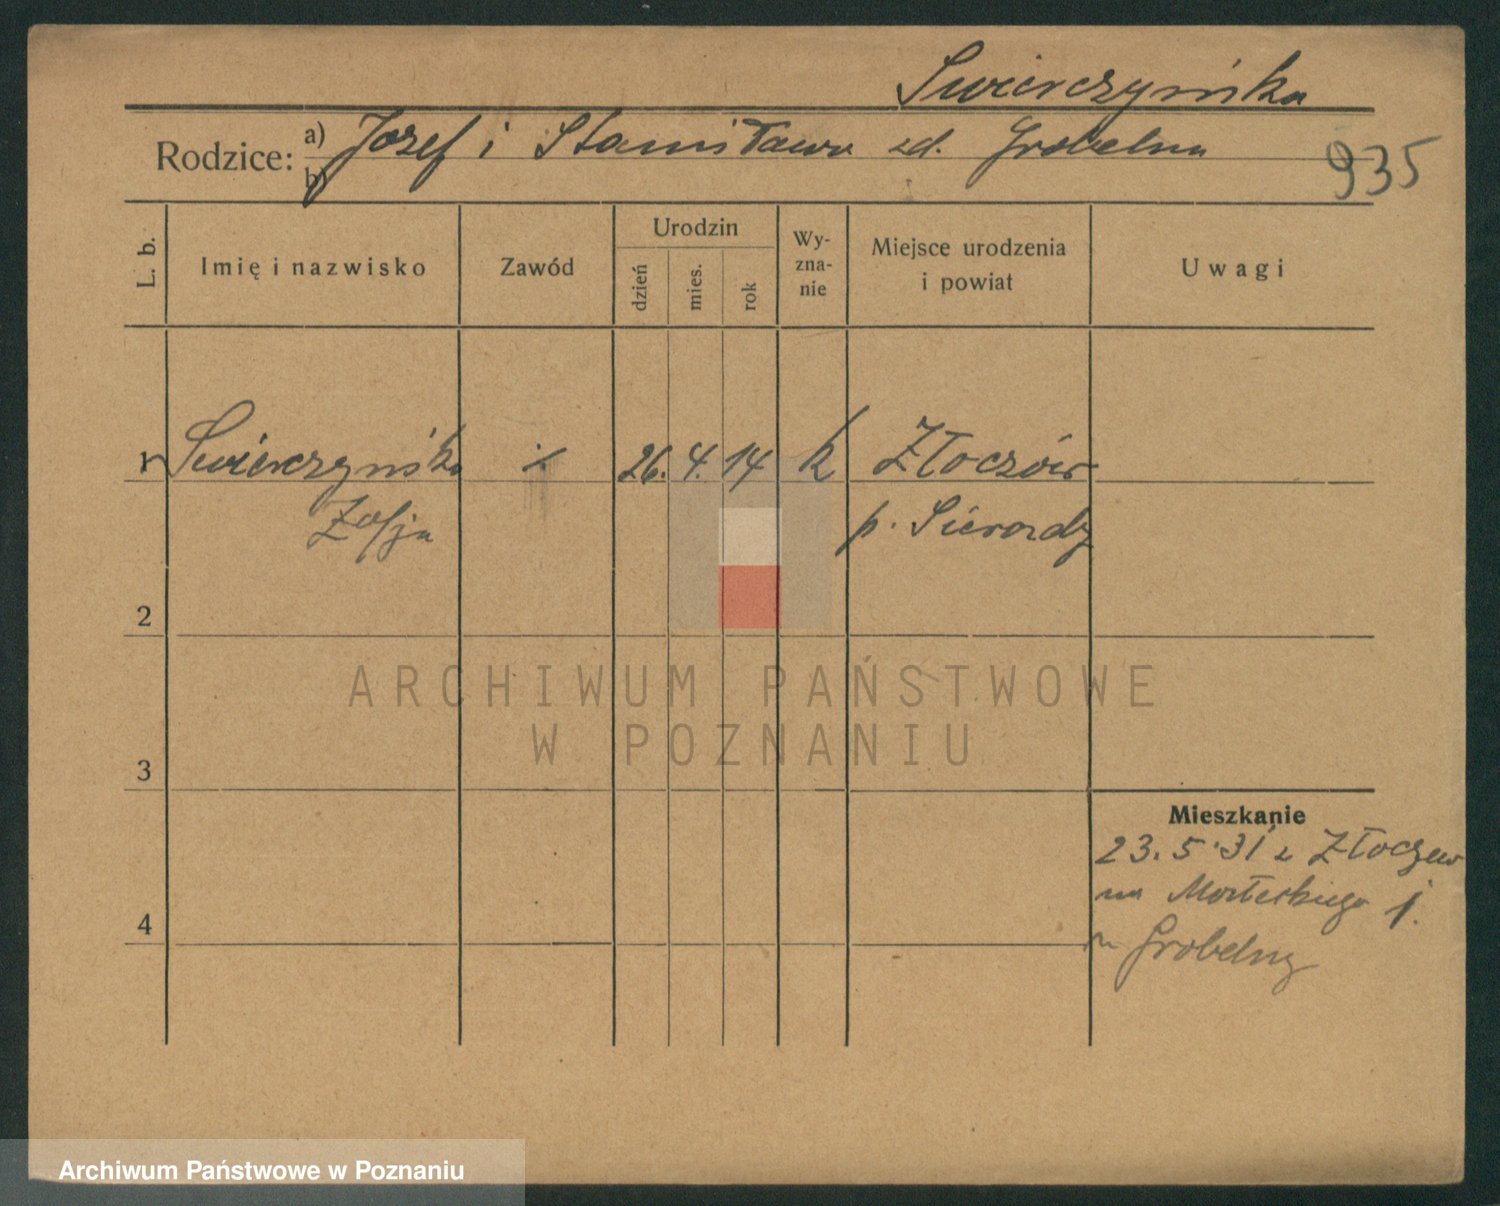 Swierczyńska
Rodzice: a) Jozef i Stanisława zd. Grobelna
b)
935
L. b.
Imię i nazwisko
Zawód
Urodzin
dzień
mies.
rok
Wy-
zna-
nie
Miejsce urodzenia
i powiat
Uwagi
1 Swierczyńska 26. 4. 14 k Złoczów
Zofja p. Sieradz
2
ARCHIWUM PAŃSTWOWE
W POZNANIU
3
Mieszkanie
23.5.31 z Złoczew
na Mosteskiego 1.
4
Grobelny
Archiwum Państwowe w Poznaniu